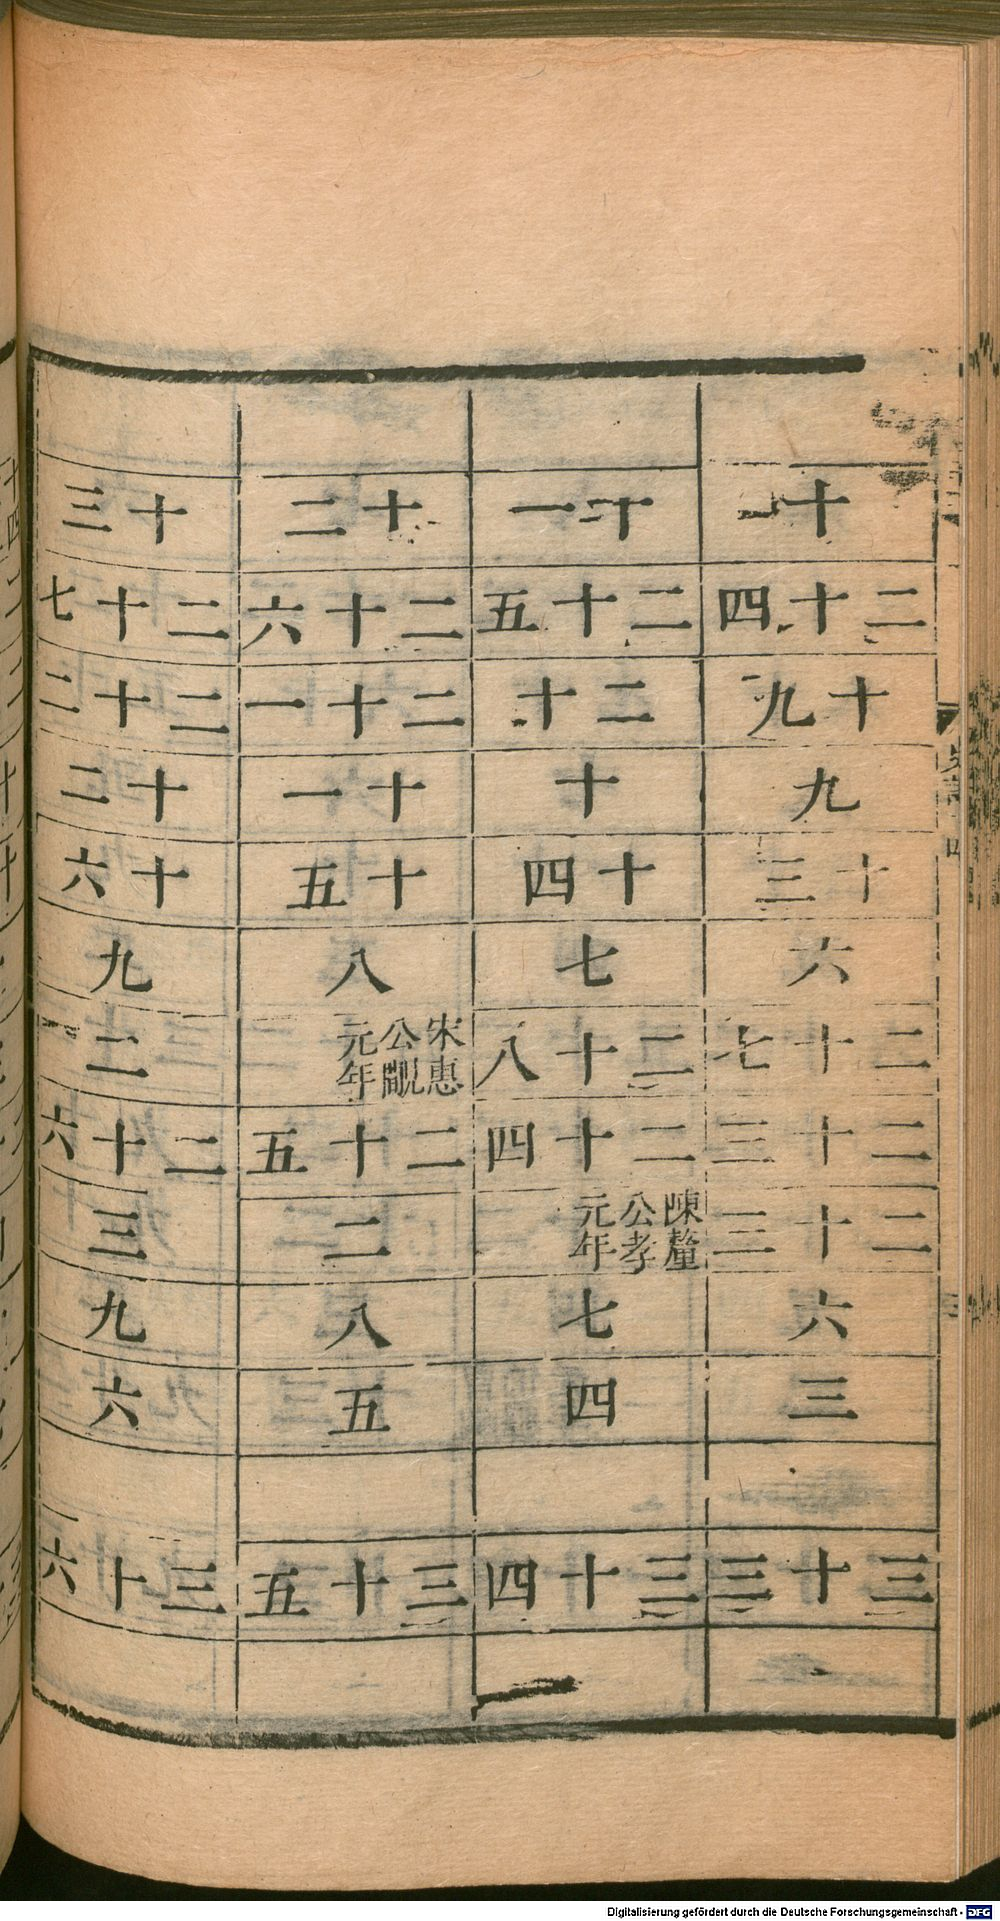 十
二十四
十九
九
十三
六
二十七
二十三
二十三
六
三
三十三
十一
二十五
二十
十
十四
七
二十八
二十四
陳釐
公孝
元年
七
四
三十四
十二
二十六
二十一
十一
十五
八
宋惠
公覵
元年
二十五
二
八
五
三十五
十三
二十七
二十二
十二
十六
九
二
二十六
三
九
六
三十六
Digitalisierung gefördert durch die Deutsche Forschungsgemeinschaft - DFG